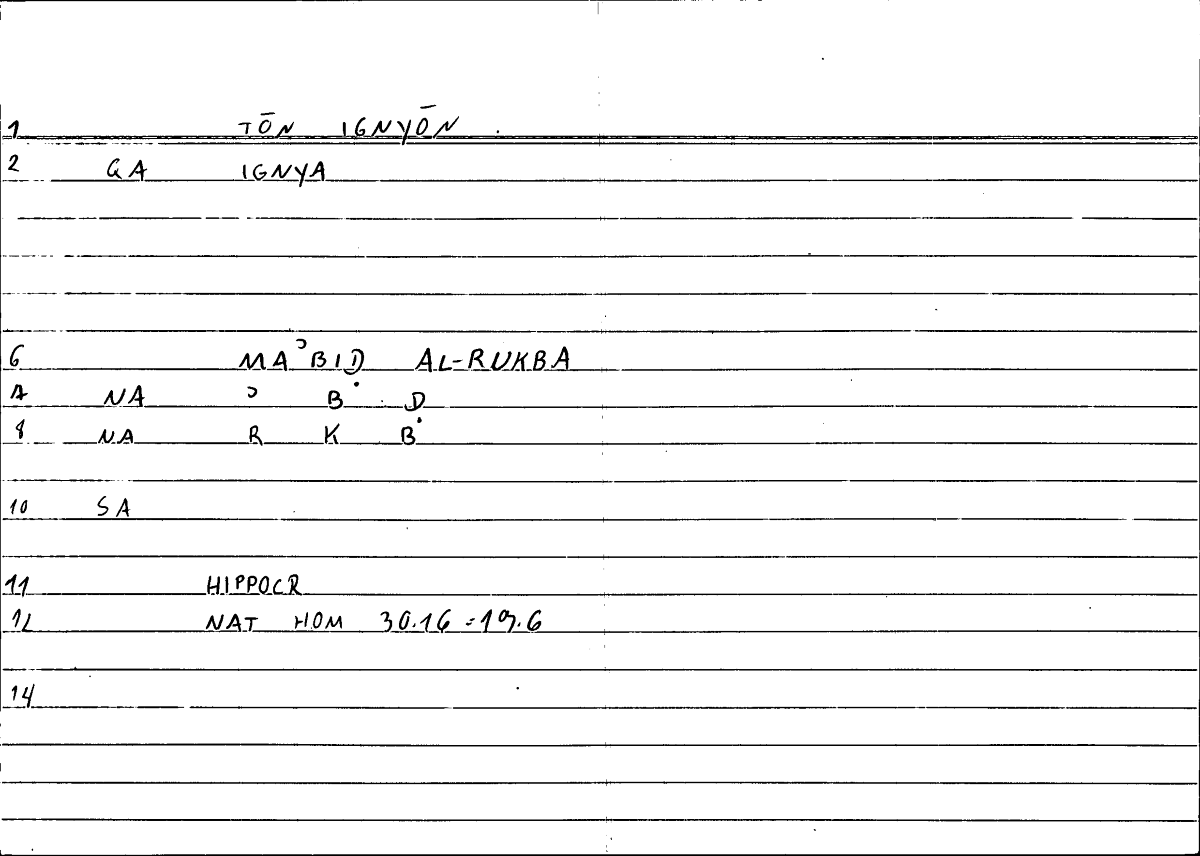 1 TŌN IGNYŌN .
2 GA IGNYA
6 MAʾBIḌ AL-RUKBA
7 NA ʾ B Ḍ
8 NA R K B
10 SA
11 HIPPOCR
12 NAT HOM 30.16 =19.6
14